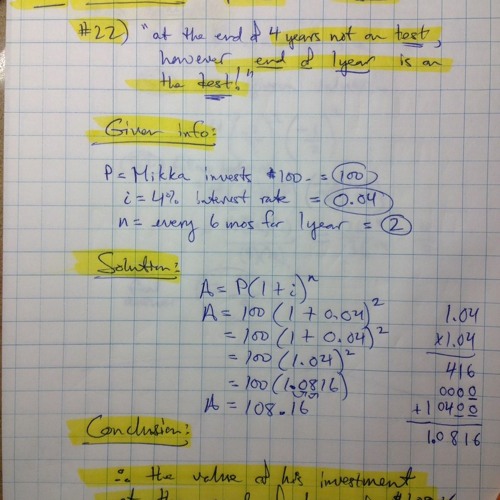 #22) "at the end of 4 years not on test,
however end of 1 year is on
the test!"
Given info:
P = Mikka invests $100- = 100
i = 4% interest rate = 0.04
n = every 6 mos for 1 year = 2
Solution:
A = P(1+i)^n
A = 100(1+0.04)^2
= 100(1+0.04)^2
= 100(1.04)^2
= 100(1.0816)
A = 108.16
1.04
x1.04
416
0000
+10400
1.0816
Conclusion:
∴ the value of his investment